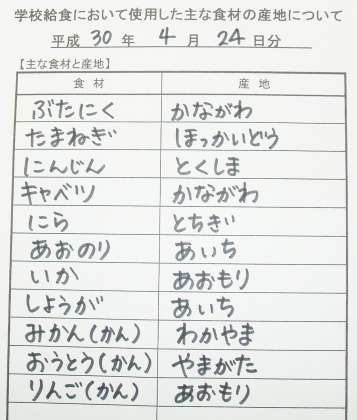 学校給食において使用した主な食材の産地について
平成 30 年 4 月 24 日分
【主な食材と産地】
食材 産地
ぶたにく かながわ
たまねぎ ほっかいどう
にんじん とくしま
キャベツ かながわ
にら とちぎ
あおのり あいち
いか あおもり
しょうが あいち
みかん(かん) わかやま
おうとう(かん) やまがた
りんご(かん) あおもり